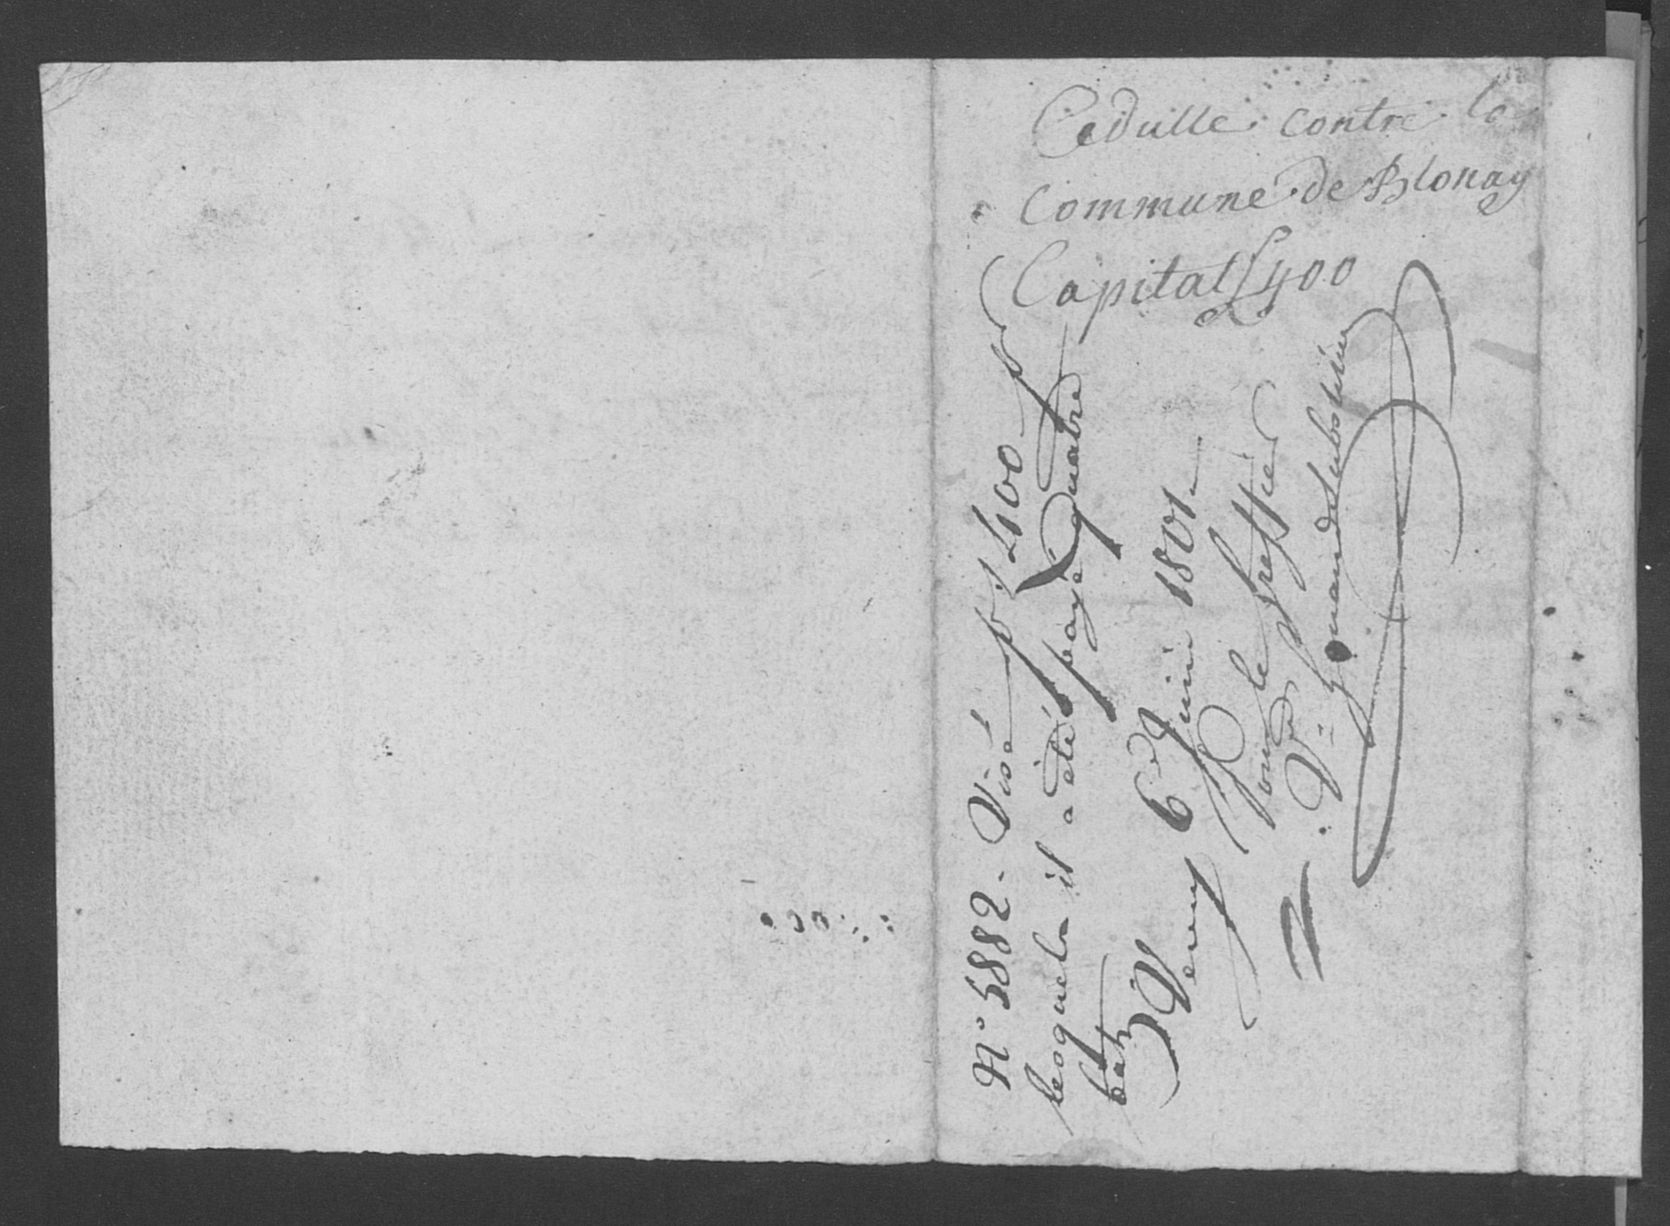 Cedulle contre la
Commune de Blonay
Capital L 400
N° 5882. Visé p. L 400 p
lesquels il a été payé quatre
batz
Vevey 6e Juin 1801
Pour le Greffier
Vt substitué